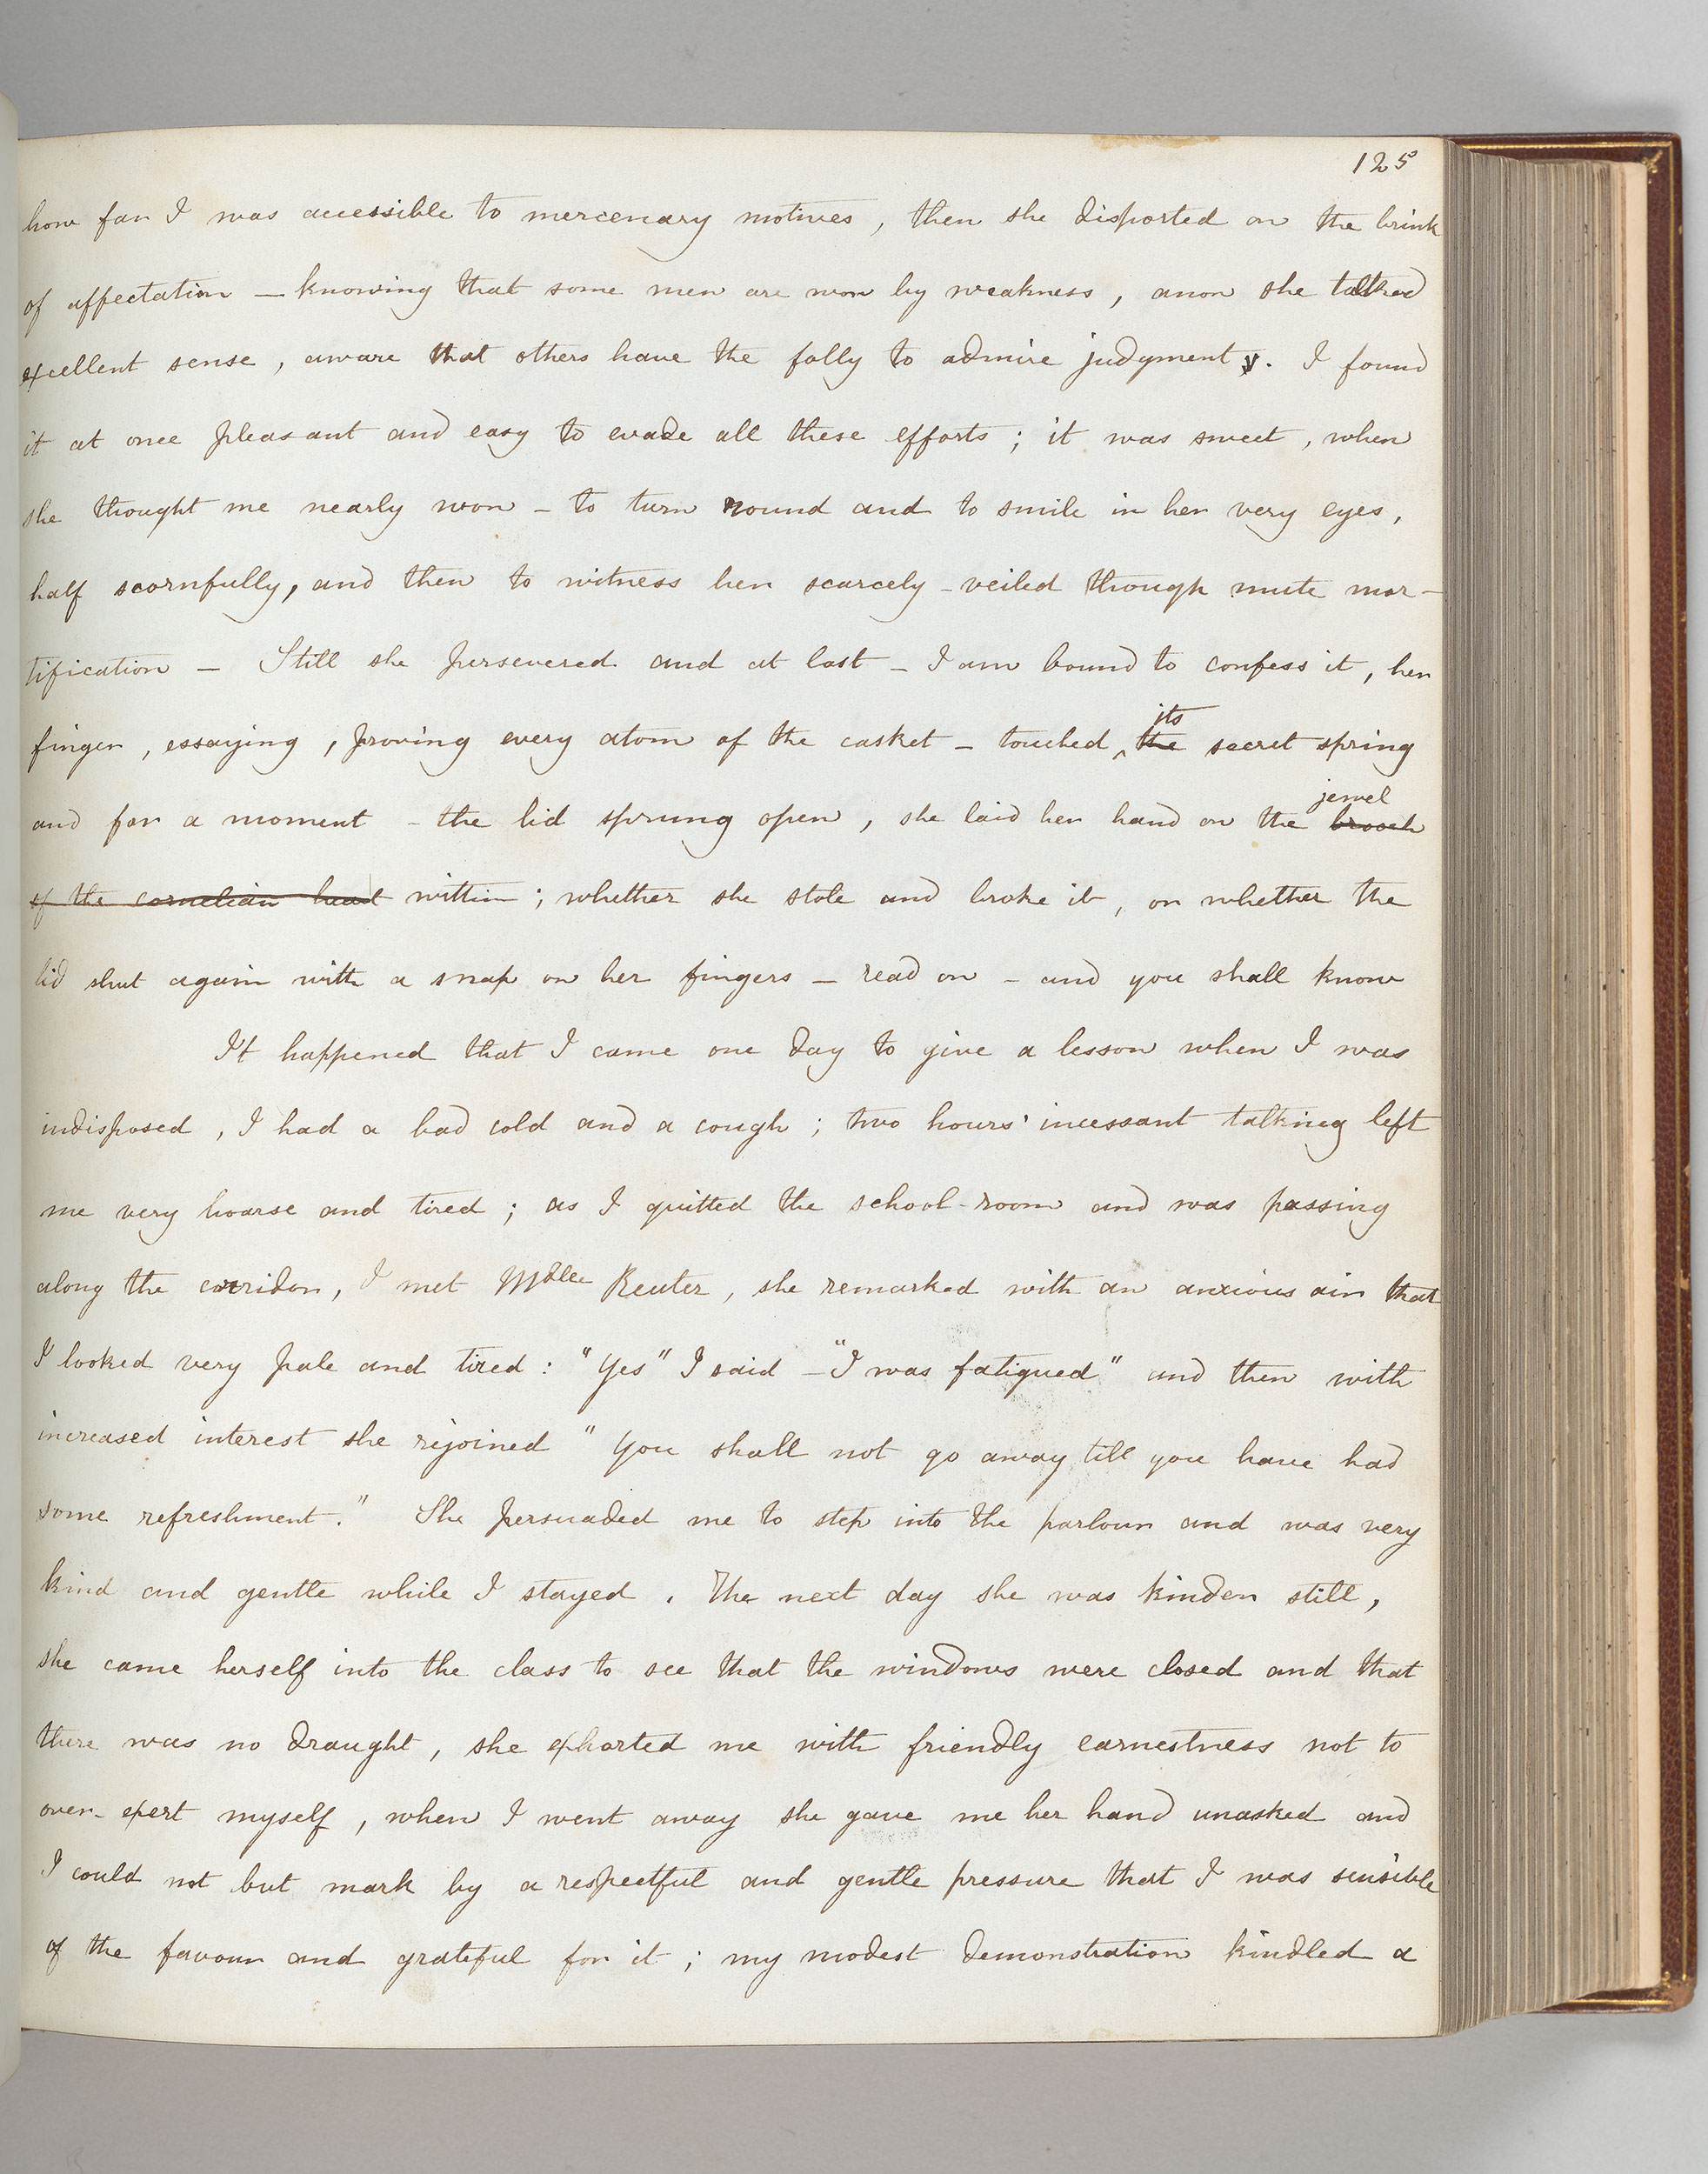 125
how far I was accessible to mercenary motives, then she disported on the brink
of affectation — knowing that some men are won by weakness, anon she talked
excellent sense, aware that others have the folly to admire judgment. I found
it at once pleasant and easy to evade all these efforts; it was sweet, when
she thought me nearly won – to turn round and to smile in her very eyes,
half scornfully, and then to witness her scarcely-veiled though mute mor-
tification — Still she persevered and at last – I am bound to confess it, her
its
finger, essaying, proving every atom of the casket – touched ^ the secret spring
jewel
and for a moment – the lid sprung open, she laid her hand on the brooch
of the cornelian heart within; whether she stole and broke it, or whether the
lid shut again with a snap on her fingers – read on – and you shall know
It happened that I came one day to give a lesson when I was
indisposed, I had a bad cold and a cough; two hours' incessant talking left
me very hoarse and tired; as I quitted the school-room and was passing
along the corridor, I met Mdlle Reuter, she remarked with an anxious air that
I looked very pale and tired: "Yes" I said – "I was fatigued" and then with
increased interest she rejoined "You shall not go away till you have had
some refreshment." She persuaded me to step into the parlour and was very
kind and gentle while I stayed. The next day she was kinder still,
she came herself into the class to see that the windows were closed and that
there was no draught, she exhorted me with friendly earnestness not to
over-exert myself, when I went away she gave me her hand unasked and
I could not but mark by a respectful and gentle pressure that I was sensible
of the favour and grateful for it; my modest demonstration kindled a